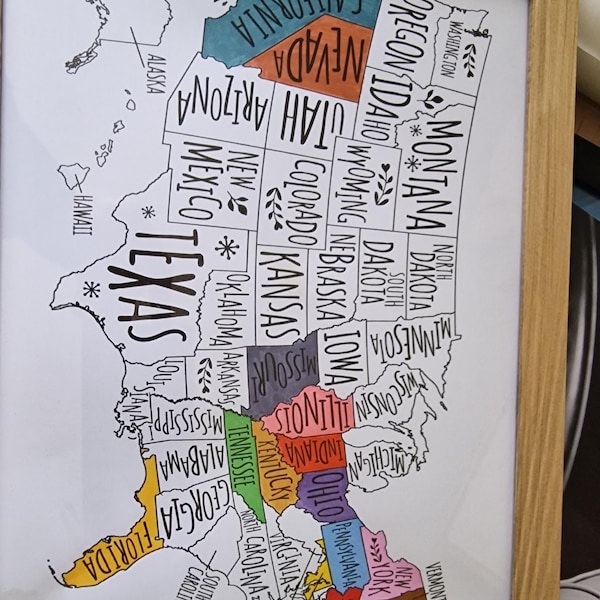 WASHINGTON
OREGON
CALIFORNIA
NEVADA
IDAHO
MONTANA
WYOMING
UTAH
ARIZONA
COLORADO
NEW
MEXICO
ALASKA
HAWAII
NORTH
DAKOTA
SOUTH
DAKOTA
NEBRASKA
KANSAS
OKLAHOMA
TEXAS
MINNESOTA
IOWA
MISSOURI
ARKANSAS
LOUISIANA
WISCONSIN
ILLINOIS
MICHIGAN
INDIANA
OHIO
KENTUCKY
TENNESSEE
MISSISSIPPI
ALABAMA
GEORGIA
FLORIDA
SOUTH
NORTH
CAROLINA
VIRGINIA
PENNSYLVANIA
NEW
YORK
VERMONT